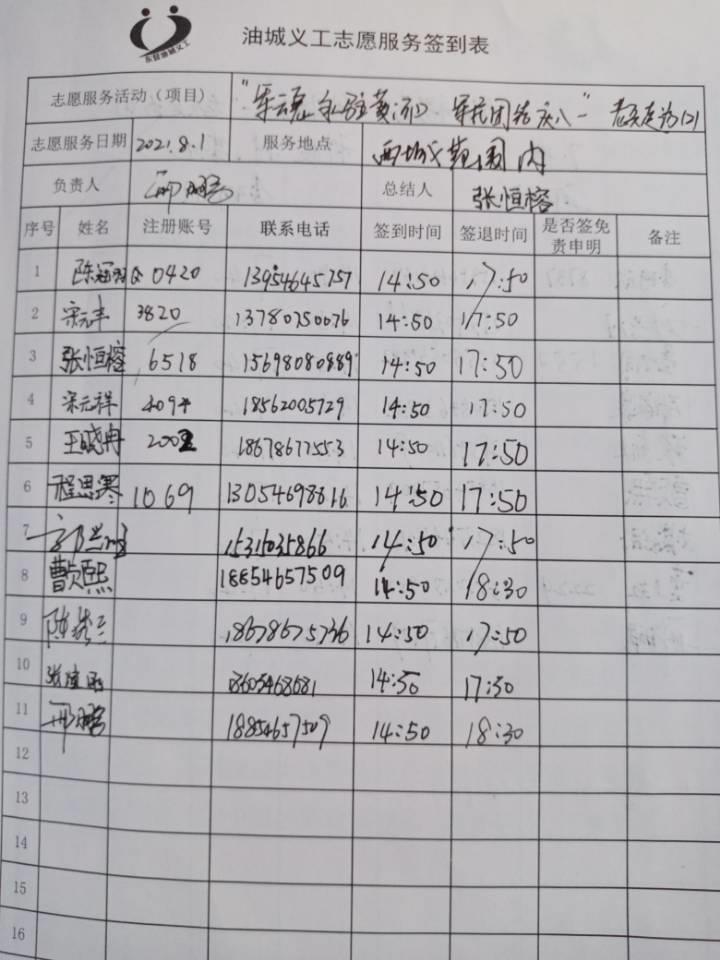 东营油城义工
油城义工志愿服务签到表
志愿服务活动（项目） "军云魂 礼驻黄河口 军民团结庆八一"
志愿服务日期 2021.8.1 服务地点 西城区范围内
负责人 邢鹏 总结人 张恒榕
序号 姓名 注册账号 联系电话 签到时间 签退时间 是否签免责申明 备注
1 0420 13954645757 14:50 17:50
2 宋元丰 3820 13780750076 14:50 17:50
3 张恒榕 6518 15698080889 14:50 17:50
4 宋元祥 4094 18562005729 14:50 17:50
5 王晓冉 2002 18678677553 14:50 17:50
6 程思寒 1069 13054698816 14:50 17:50
7 15315035866 14:50 17:50
8 18854657509 14:50 18:30
9 18678675736 14:50 17:50
10 13605468681 14:50 17:50
11 邢鹏 18854657509 14:50 18:30
12
13
14
15
16